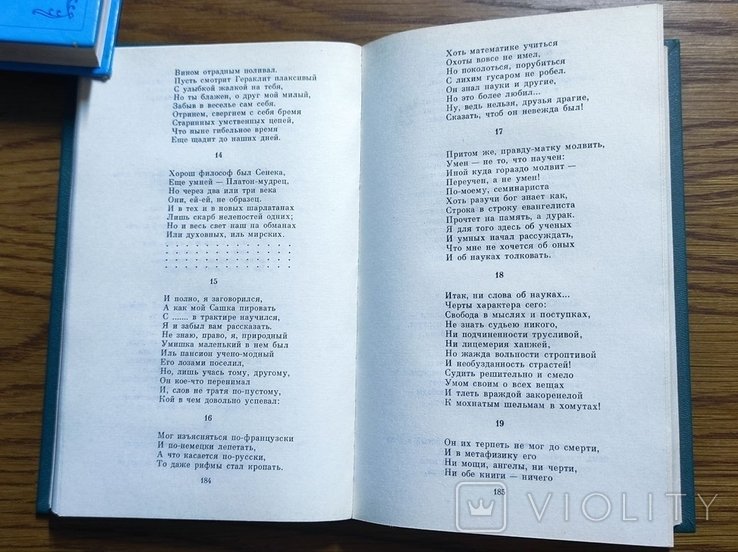 Вином отрадным поливал.
Пусть смотрит Гераклит плаксивый
С улыбкой жалкой на тебя,
Но ты блажен, о друг мой милый,
Забыв в веселье сам себя.
Отринем, свергнем с себя бремя
Старинных умственных цепей,
Что ныне гибельное время
Еще щадит до наших дней.
14
Хорош философ был Сенека,
Еще умней — Платон-мудрец,
Но через два или три века
Они, ей-ей, не образец.
И в тех и в новых шарлатанах
Лишь скарб нелепостей одних;
Но и весь свет наш на обманах
Или духовных, иль мирских.
15
И полно, я заговорился,
А как мой Сашка пировать
С ....... в трактире научился,
Я и забыл вам рассказать.
Не знаю, право, я, природный
Умишка маленький в нем был
Иль пансион учено-модный
Его лозами поселил,
Но, лишь учась тому, другому,
Он кое-что перенимал
И, слов не тратя по-пустому,
Кой в чем довольно успевал:
16
Мог изъясняться по-французски
И по-немецки лепетать,
А что касается по-русски,
То даже рифмы стал кропать.
184
Хоть математике учиться
Охоты вовсе не имел,
Но поколоться, порубиться
С лихим гусаром не робел.
Он знал науки и другие,
Но это более любил...
Ну, ведь нельзя, друзья драгие,
Сказать, чтоб он невежда был!
17
Притом же, правду-матку молвить,
Умен — не то, что научен:
Иной куда гораздо молвит —
Переучен, а не умен!
По-моему, семинариста
Хоть разучи бог знает как,
Строка в строку евангелиста
Прочтет на память, а дурак.
Я для того здесь об ученых
И умных начал рассуждать,
Что мне не хочется об оных
И об науках толковать.
18
Итак, ни слова об науках...
Черты характера сего:
Свобода в мыслях и поступках,
Не знать судьею никого,
Ни подчиненности трусливой,
Ни лицемерия ханжей,
Но жажда вольности строптивой
И необузданность страстей!
Судить решительно и смело
Умом своим о всех вещах
И тлеть враждой закоренелой
К мохнатым шельмам в хомутах!
19
Он их терпеть не мог до смерти,
И в метафизику его
Ни мощи, ангелы, ни черти,
Ни обе книги — ничего
185
VIOLITY